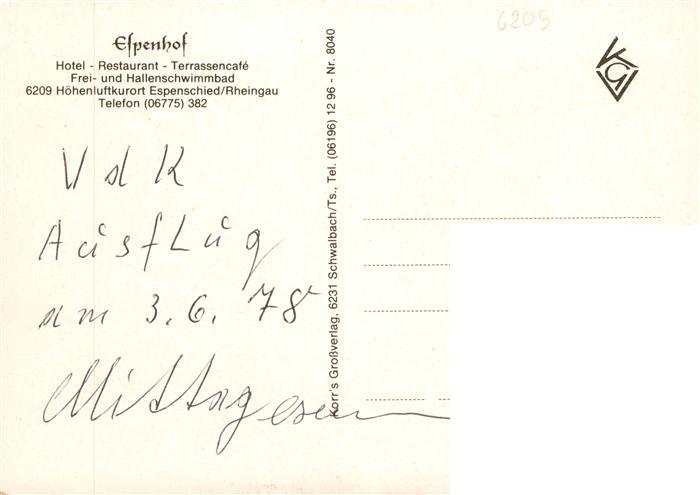 6209
Espenhof
Hotel - Restaurant - Terrassencafé
Frei- und Hallenschwimmbad
6209 Höhenluftkurort Espenschied/Rheingau
Telefon (06775) 382
VdK
Ausflug
am 3.6.78
Mittagessen
Korr's Großverlag, 6231 Schwalbach/Ts., Tel. (06196) 12 96 - Nr. 8040
KGV